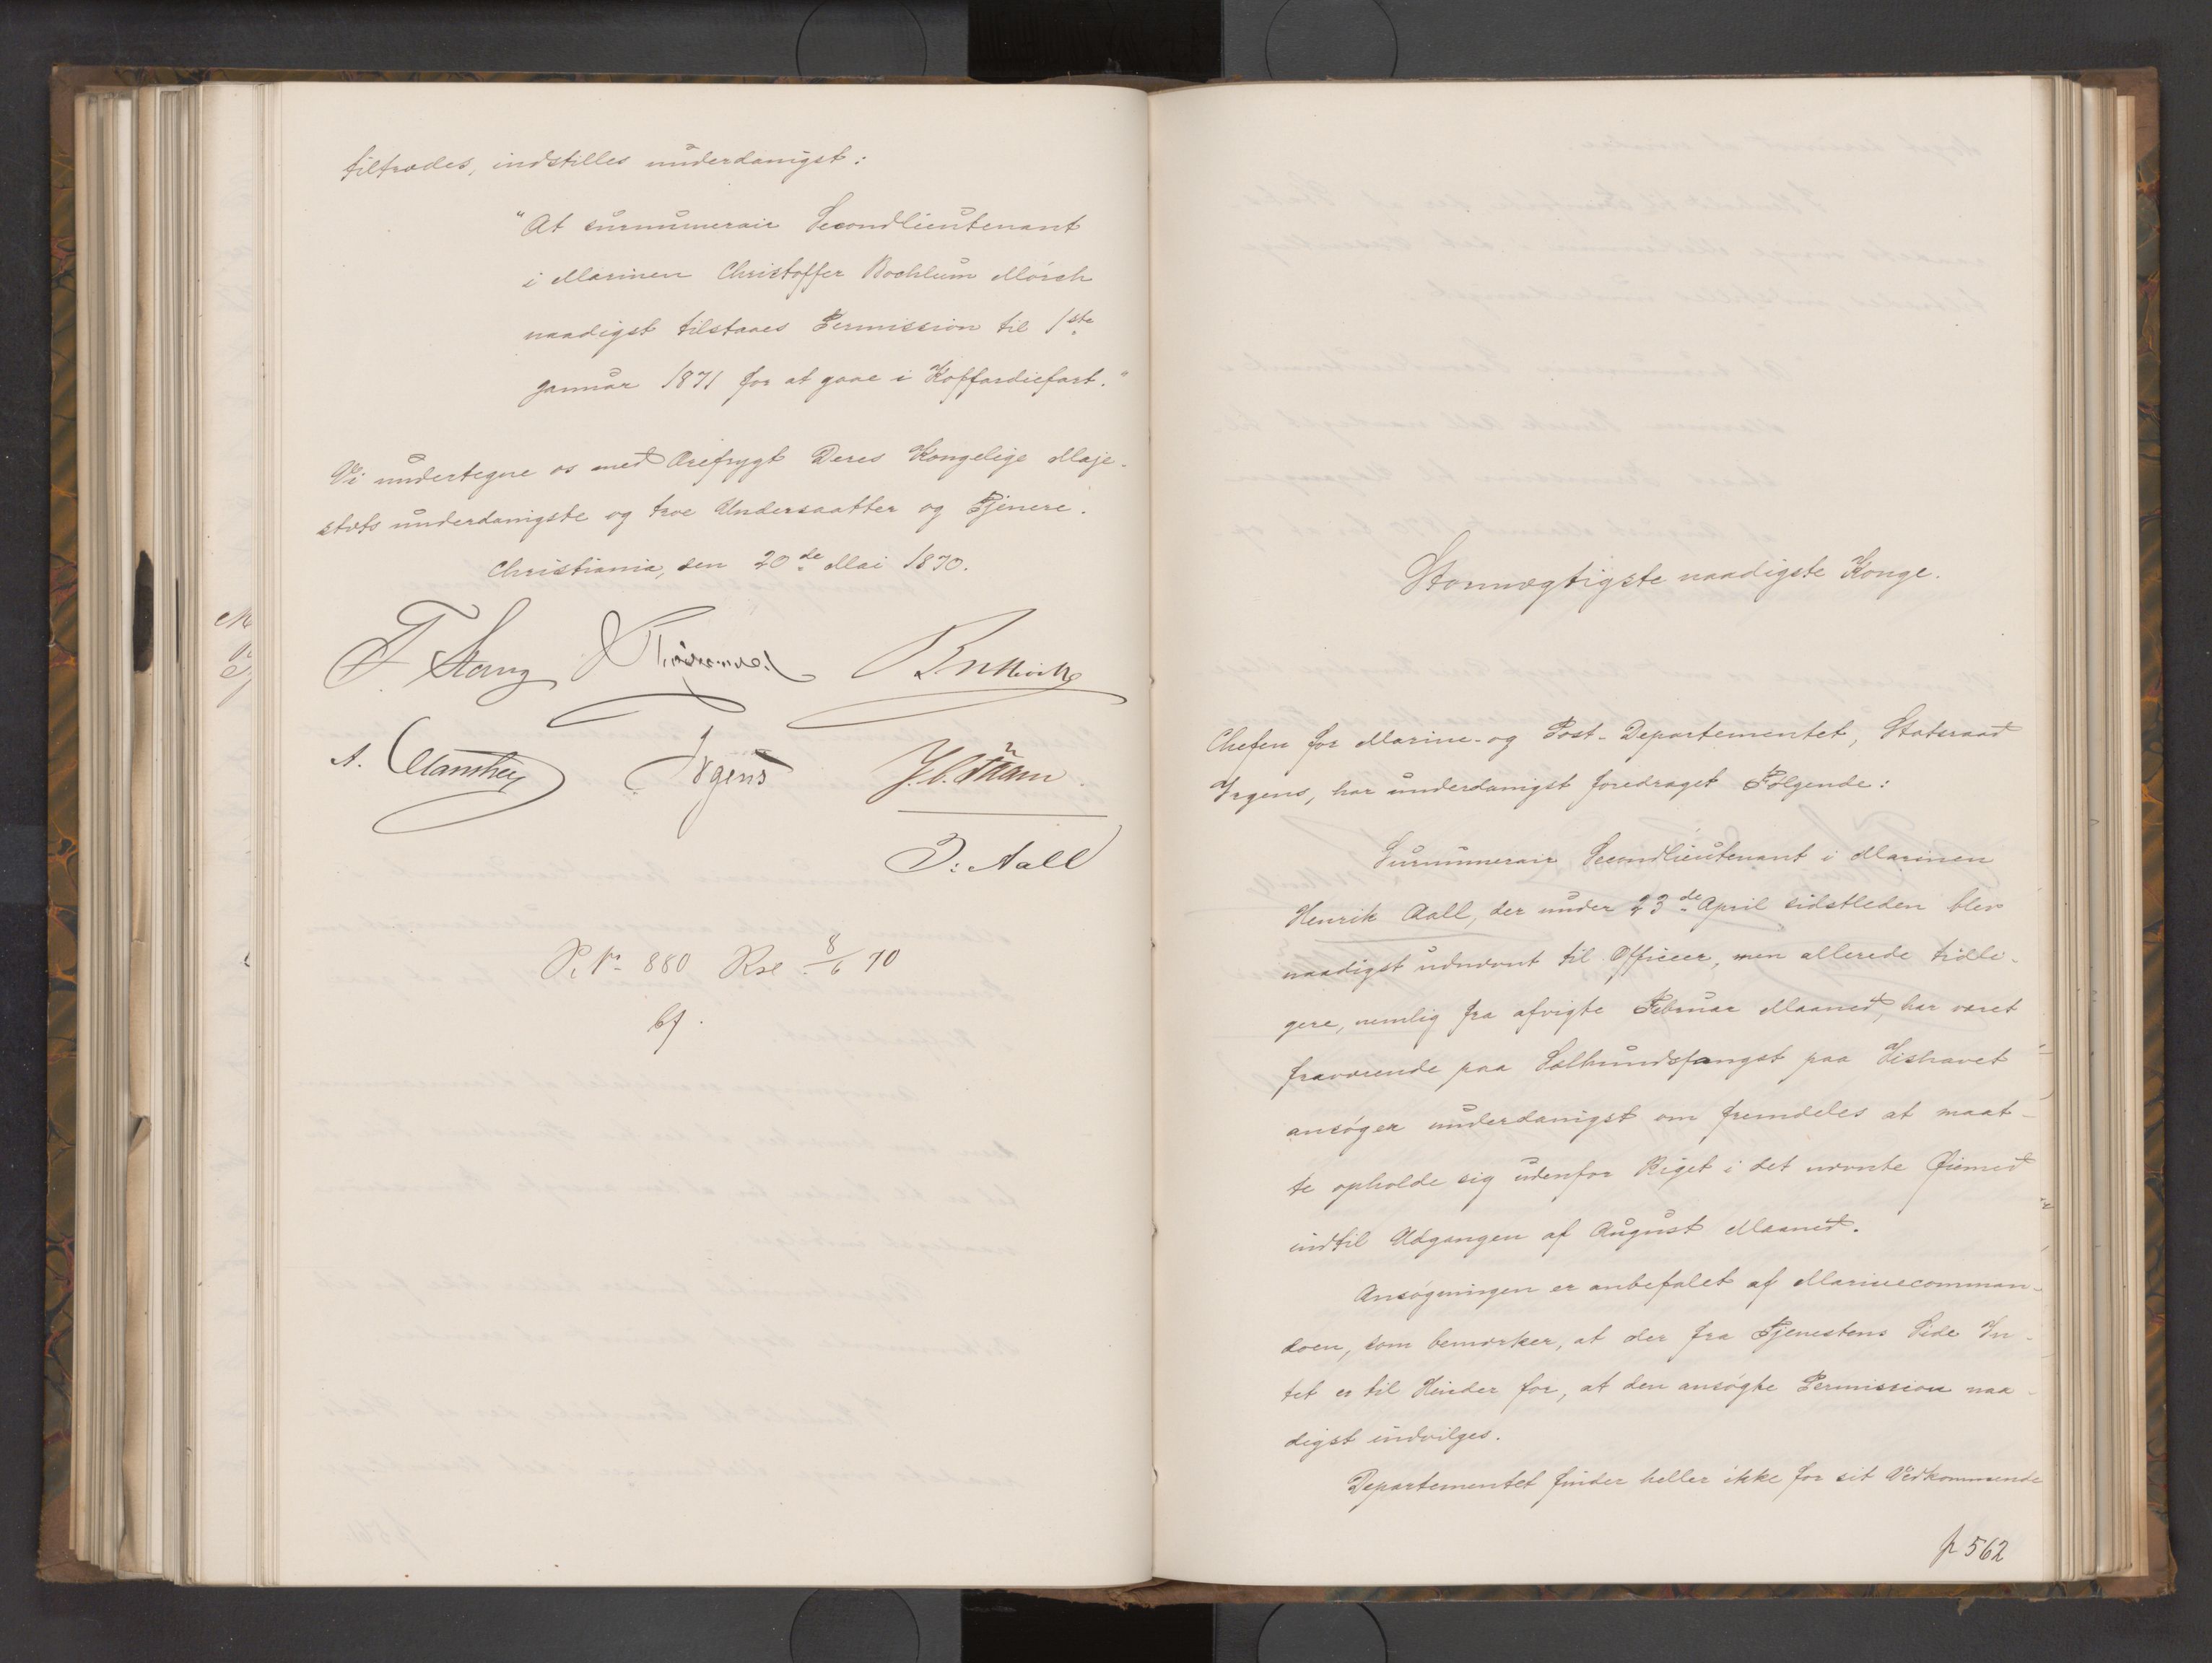 tiltrædes, indstilles underdanigst:
"At surnumerair Secondlieutenant
i Marinen Christoffer Bochlum Mörch
naadigst tilstaaes Permission til 1ste
Januar 1871 for at gaae i Koffardiefart."
Vi undertegne os med Ærefrygt Deres Kongelige Maje-
stæts underdanigste og troe Undersaatter og Tjenere.
Christiania, den 20de Mai 1870.
F. Stang
A.
Irgens
J. Aall
880 8/6 70
Stormægtigste naadigste Konge.
Chefen for Marine- og Post-Departementet, Statsraad
Irgens, har underdanigst foredraget Følgende:
Surnumerair Secondlieutenant i Marinen
Henrik Aall, der under 23de April sidstleden blev
naadigst udnævnt til Officer, men allerede tidli-
gere, nemlig fra afvigte Februar Maaned, har været
fraværende paa Sælhundsfangst paa Iishavet
ansøger underdanigst om fremdeles at maat-
te opholde sig udenfor Riget i det nævnte Øiemed
indtil Udgangen af August Maaned.
Ansøgningen er anbefalet af Marinecomman-
doen, som bemærker, at der fra Tjenestens Side In-
tet er til Hinder for, at den ansøgte Permission naa-
digst indvilges.
Departementet finder heller ikke for sit Vedkommende
p 562